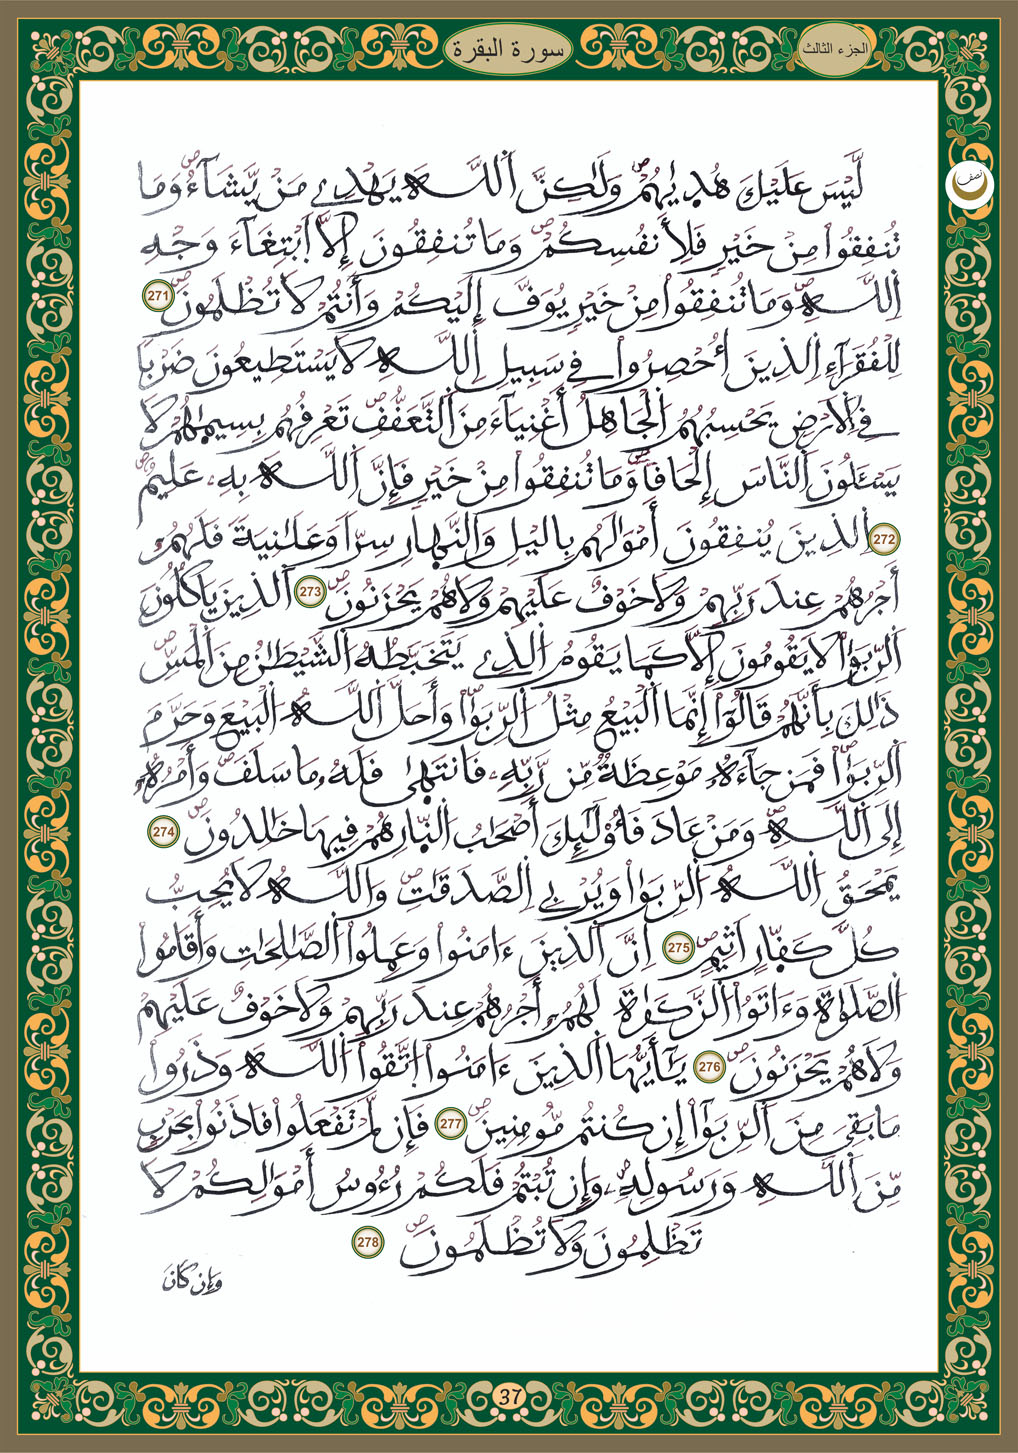 الجزء الثالث
سورة البقرة
نصف
لَّيْسَ عَلَيْكَ هُدٜيٰهُمْ وَلَٰكِنَّ اَ۬للَّهَ يَهْدِے مَنْ يَّشَآءُ وَمَا
تُنفِقُواْ مِنْ خَيْرٍ فَلِأَنفُسِكُمْ وَمَا تُنفِقُونَ إِلَّا اَ۪بْتِغَآءَ وَجْهِ
اِ۬للَّهِ وَمَا تُنفِقُواْ مِنْ خَيْرٍ يُوَفَّ إِلَيْكُمْ وَأَنتُمْ لَا تُظْلَمُونَ 271
لِلْفُقَرَآءِ اِ۬لذِينَ أُحْصِرُواْ فِے سَبِيلِ اِ۬للَّهِ لَا يَسْتَطِيعُونَ ضَرْباٗ
فِے اِ۬لَارْضِ يَحْسِبُهُمُ اُ۬لْجَاهِلُ أَغْنِيَآءَ مِنَ اَ۬لتَّعَفُّفِ تَعْرِفُهُم بِسِيمٜيٰهُمْ لَا
يَسْـَٔلُونَ اَ۬لنَّاسَ إِلْحَافاٗ وَمَا تُنفِقُواْ مِنْ خَيْرٍ فَإِنَّ اَ۬للَّهَ بِهِۦ عَلِيمٌ
272 اِ۬لذِينَ يُنفِقُونَ أَمْوَٰلَهُم بِاليْلِ وَالنَّهٜارِ سِرّاٗ وَعَلَٰنِيَةٗ فَلَهُمُۥٓ
أَجْرُهُمْ عِندَ رَبِّهِمْ وَلَا خَوْفٌ عَلَيْهِمْ وَلَا هُمْ يَحْزَنُونَ 273 اَ۬لذِينَ يَاكُلُونَ
اَ۬لرِّبَوٰاْ لَا يَقُومُونَ إِلَّا كَمَا يَقُومُ اُ۬لذِے يَتَخَبَّطُهُ اُ۬لشَّيْطَٰنُ مِنَ اَ۬لْمَسِّ
ذَٰلِكَ بِأَنَّهُمْ قَالُوٓاْ إِنَّمَا اَ۬لْبَيْعُ مِثْلُ اُ۬لرِّبَوٰاْ وَأَحَلَّ اَ۬للَّهُ اُ۬لْبَيْعَ وَحَرَّمَ
اَ۬لرِّبَوٰاْ فَمَن جَآءَهُۥ مَوْعِظَةٌ مِّن رَّبِّهِۦ فَانتَهٜىٰ فَلَهُۥ مَا سَلَفَ وَأَمْرُهُۥٓ
إِلَى اَ۬للَّهِ وَمَنْ عَادَ فَأُوْلَٰٓئِكَ أَصْحَٰبُ اُ۬لنّٜارِ هُمْ فِيهَا خَٰلِدُونَ 274
يَمْحَقُ اُ۬للَّهُ اُ۬لرِّبَوٰاْ وَيُرْبِے اِ۬لصَّدَقَٰتِ وَاللَّهُ لَا يُحِبُّ
كُلَّ كَفّٜارٍ اَثِيمٍ 275 اِنَّ اَ۬لذِينَ ءَامَنُواْ وَعَمِلُواْ اُ۬لصَّٰلِحَٰتِ وَأَقَامُواْ
اُ۬لصَّلَوٰةَ وَءَاتَوُاْ اُ۬لزَّكَوٰةَ لَهُمُۥٓ أَجْرُهُمْ عِندَ رَبِّهِمْ وَلَا خَوْفٌ عَلَيْهِمْ
وَلَا هُمْ يَحْزَنُونَ 276 يَٰٓأَيُّهَا اَ۬لذِينَ ءَامَنُواْ اُ۪تَّقُواْ اُ۬للَّهَ وَذَرُواْ
مَا بَقِيَ مِنَ اَ۬لرِّبَوٰٓاْ إِن كُنتُم مُّومِنِينَ 277 فَإِن لَّمْ تَفْعَلُواْ فَاذَنُواْ بِحَرْبٍ
مِّنَ اَ۬للَّهِ وَرَسُولِهِۦ وَإِن تُبْتُمْ فَلَكُمْ رُءُوسُ أَمْوَٰلِكُمْ لَا
تَظْلِمُونَ وَلَا تُظْلَمُونَ 278
وَإِن كَانَ
37